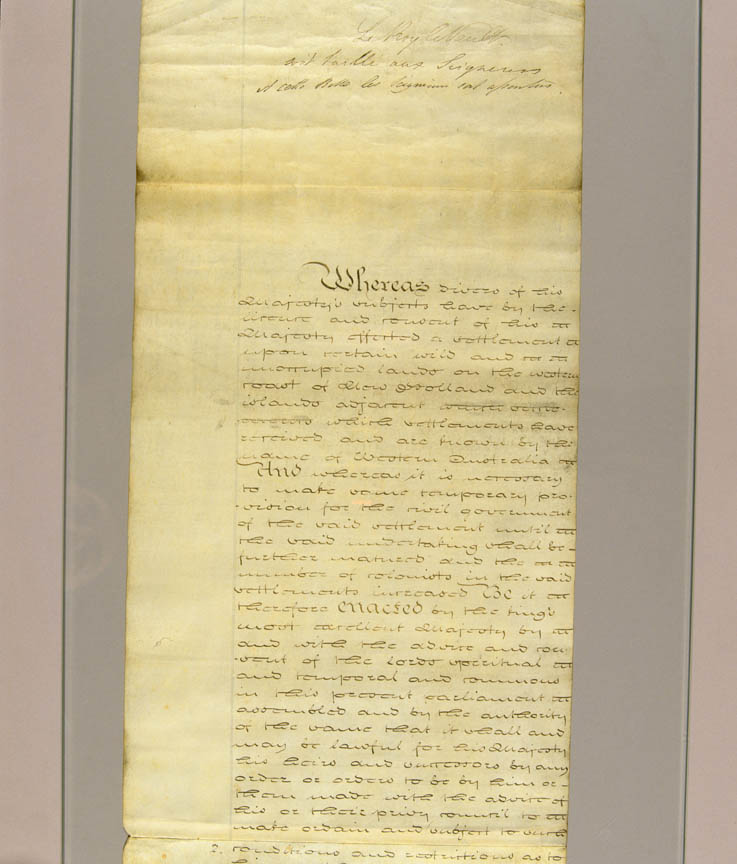 Le Roy le Veult.
soit baillé aux Seigneurs
A cette Bille les Seigneurs sont assentus.
Whereas divers of his
Majesty's subjects have by the
licence and consent of his
Majesty effected a settlement
upon certain wild and
unoccupied lands on the western
coast of New Holland and the
islands adjacent
which settlements have
received and are known by the
name of Western Australia
And whereas it is necessary
to make some temporary pro-
-vision for the civil government
of the said settlement until
the said undertaking shall be
further matured and the
number of colonists in the said
settlements increased Be it
therefore enacted by the king's
most excellent Majesty by
and with the advice and con-
-sent of the lords spiritual
and temporal and commons
in this present parliament
assembled and by the authority
of the same that it shall and
may be lawful for his Majesty
his heirs and successors by any
order or orders to be by him or
them made with the advice of
his or their privy council to
make ordain and subject to such
2. conditions and restrictions as to